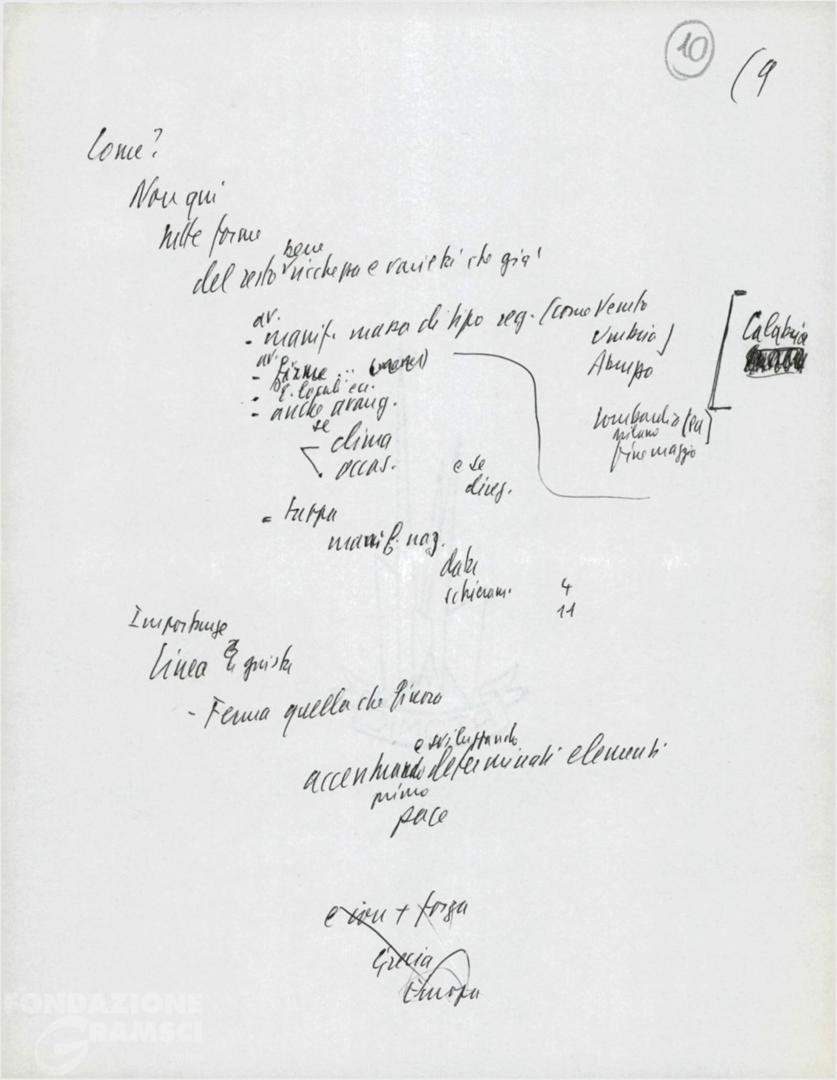 10
(9
Come?
Non qui
nelle forme
bene
del resto ricchezza e varietà che già
av.
- manif. massa di tipo reg. (come Veneto
Umbria)
Abruzzo
Calabria
av.
- firme
- E. locali ecc.
- anche avang.
Lombardia
Milano
fine maggio
se
clima
occas.
e se
diveg.
- tappa
manif. naz.
date
schieram.
4
11
Importanza
Linea è giusta
- Ferma quella che finora
e sviluppando
accentuando determinati elementi
primo
pace
e con + forza
Grecia
Europa
FONDAZIONE
GRAMSCI